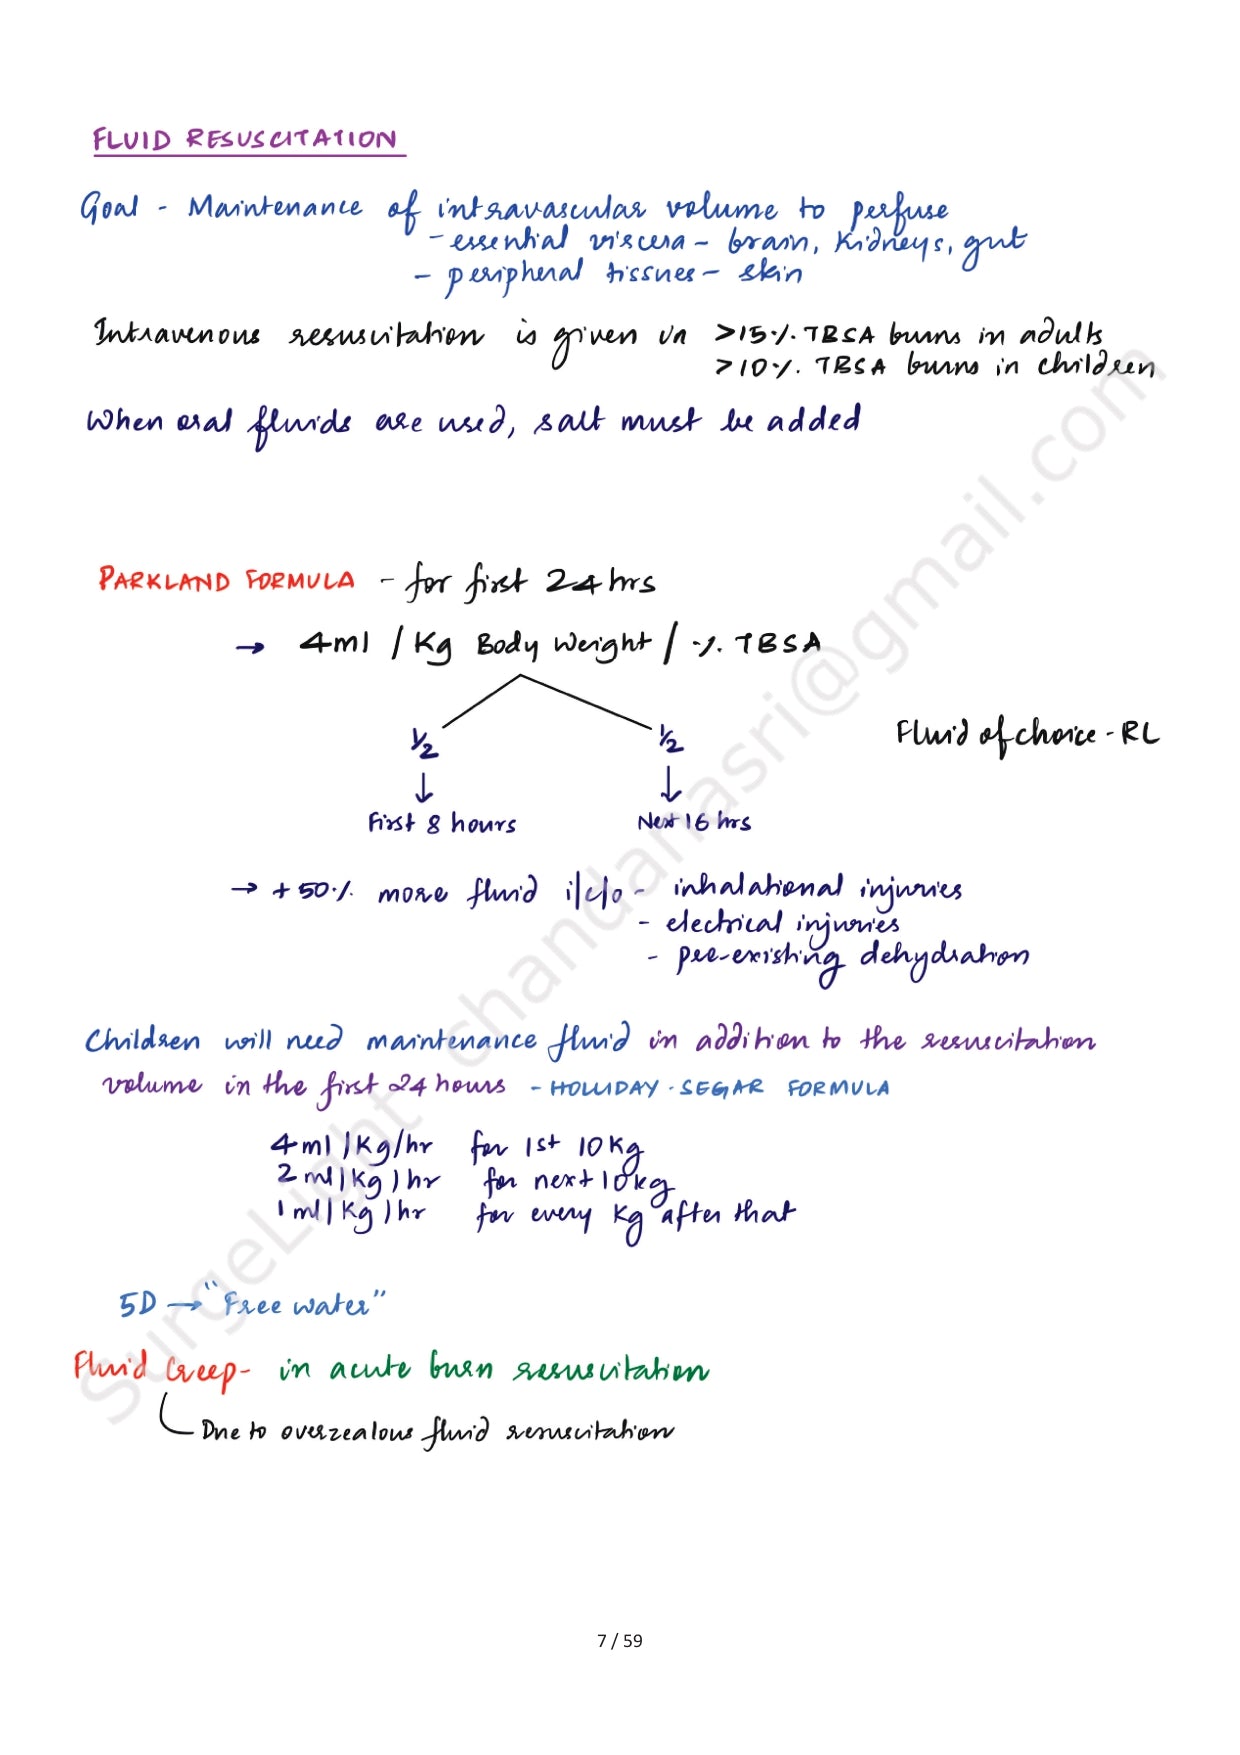 FLUID RESUSCITATION
Goal - Maintenance of intravascular volume to perfuse
- essential viscera - brain, kidneys, gut
- peripheral tissues - skin
Intravenous resuscitation is given in >15% TBSA burns in adults
>10% TBSA burns in children
When oral fluids are used, salt must be added
PARKLAND FORMULA - for first 24 hrs
→ 4ml / Kg Body Weight / % TBSA
1/2 1/2
Fluid of choice - RL
↓ ↓
First 8 hours Next 16 hrs
→ +50% more fluid i/c/o - inhalational injuries
- electrical injuries
- pre-existing dehydration
Children will need maintenance fluid in addition to the resuscitation
volume in the first 24 hours - HOLLIDAY-SEGAR FORMULA
4ml/Kg/hr for 1st 10Kg
2ml/Kg/hr for next 10kg
1ml/Kg/hr for every Kg after that
5D → "Free water"
Fluid Creep - in acute burn resuscitation
Due to overzealous fluid resuscitation
7 / 59
SurgeLight chandanasri@gmail.com